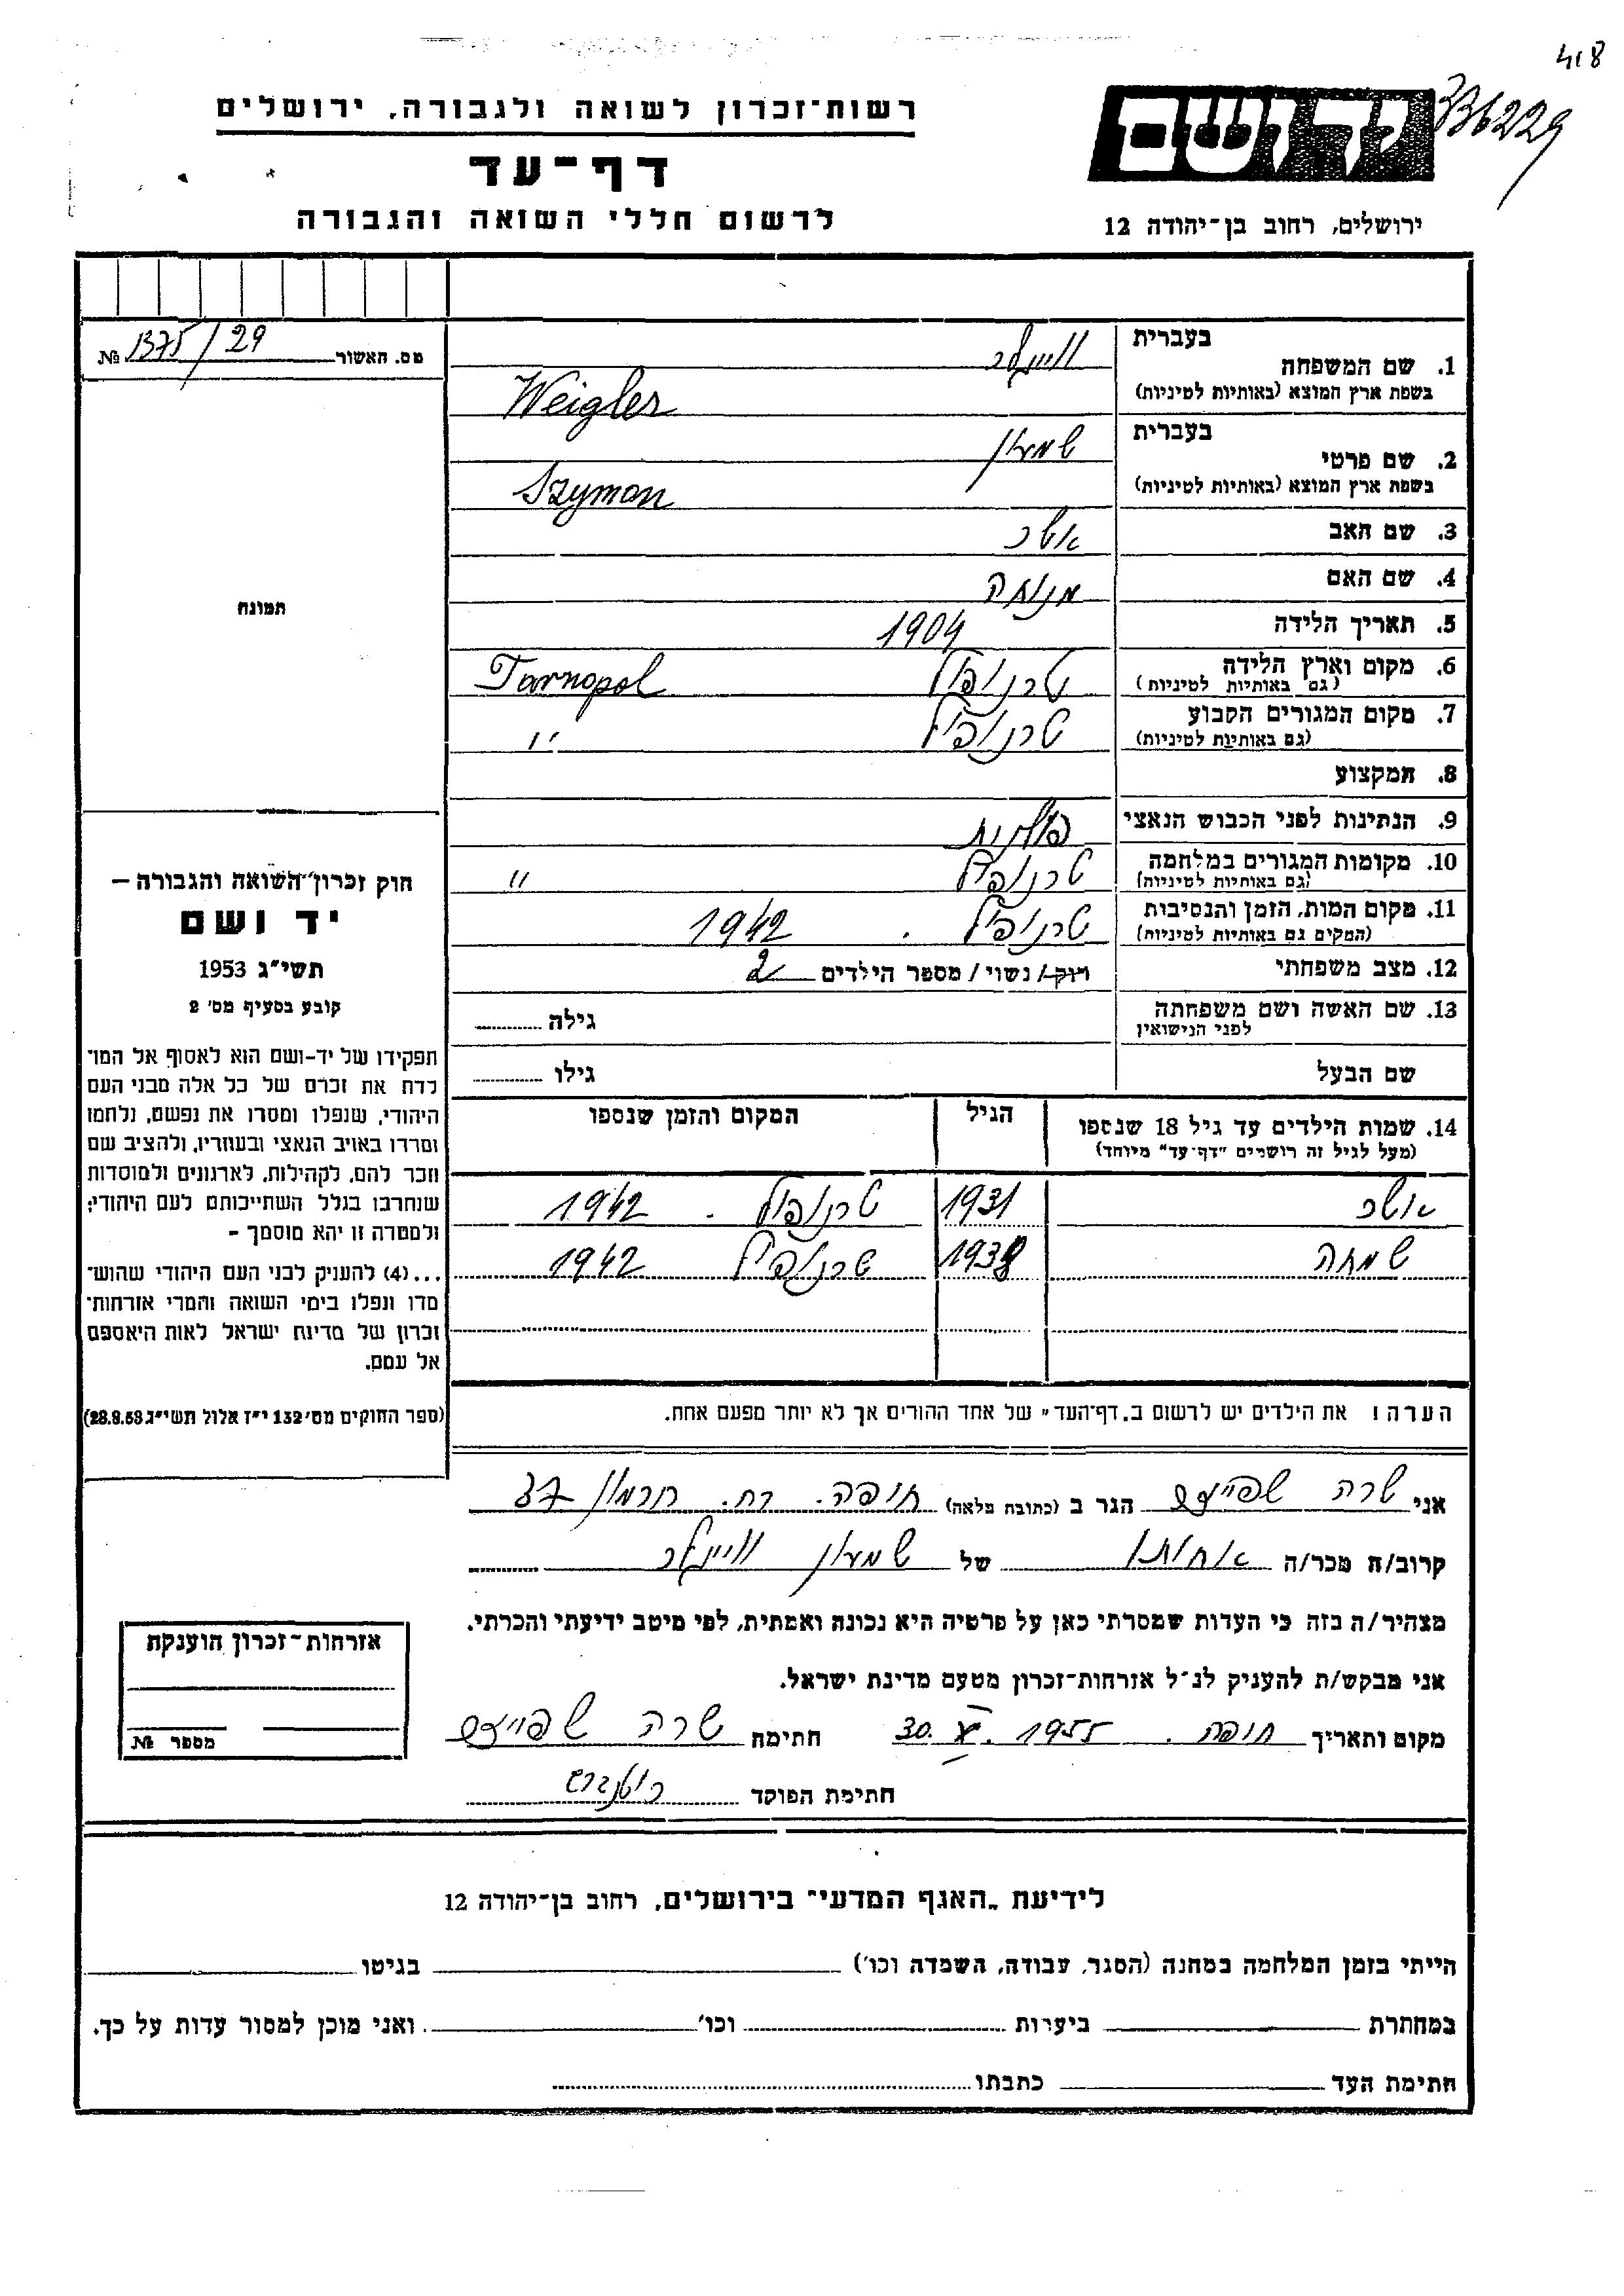 418
336229
יד ושם
ירושלים, רחוב בן-יהודה 12
רשות-זכרון לשואה ולגבורה, ירושלים
דף-עד
לרשום חללי השואה והגבורה
מס. האשור 1375/29 №
תמונה
בעברית
1. שם המשפחה וייגלר
בשפת ארץ המוצא (באותיות לטיניות) Weigler
בעברית
2. שם פרטי שמעון
בשפת ארץ המוצא (באותיות לטיניות) Szymon
3. שם האב אשר
4. שם האם מנוחה
5. תאריך הלידה 1904
6. מקום וארץ הלידה טרנופול Tarnopol
(גם באותיות לטיניות)
7. מקום המגורים הקבוע טרנופול "
(גם באותיות לטיניות)
8. המקצוע
9. הנתינות לפני הכבוש הנאצי פולנית
10. מקומות המגורים במלחמה טרנופול "
(גם באותיות לטיניות)
11. מקום המות, הזמן והנסיבות טרנופול. 1942
(המקום גם באותיות לטיניות)
12. מצב משפחתי רווק/ נשוי / מספר הילדים 2
13. שם האשה ושם משפחתה גילה
לפני הנישואין
שם הבעל גילו
14. שמות הילדים עד גיל 18 שנספו הגיל המקום והזמן שנספו
(מעל לגיל זה רושמים "דף-עד" מיוחד)
אשר 1931 טרנופול. 1942
שמחה 1938 טרנופול 1942
הערה ! את הילדים יש לרשום ב"דף-העד" של אחד ההורים אך לא יותר מפעם אחת.
חוק זכרון השואה והגבורה –
יד ושם
תשי"ג 1953
קובע בסעיף מס' 2
תפקידו של יד-ושם הוא לאסוף אל המו־
לדת את זכרם של כל אלה מבני העם
היהודי, שנפלו ומסרו את נפשם, נלחמו
ומרדו באויב הנאצי ובעוזריו, ולהציב שם
וזכר להם, לקהילות, לארגונים ולמוסדות
שנחרבו בגלל השתייכותם לעם היהודי;
ולמטרה זו יהא מוסמך –
...(4) להעניק לבני העם היהודי שהוש־
מדו ונפלו בימי השואה והמרי אזרחות־
זכרון של מדינת ישראל לאות היאספם
אל עמם.
(ספר החוקים מס' 132 י"ז אלול תשי"ג 28.8.53)
אני שרה שפייצר הגר ב (כתובת מלאה) חיפה. רח.  37
קרוב/ה מכר/ה אחותו של שמעון וייגלר
מצהיר/ה בזה כי העדות שמסרתי כאן על פרטיה היא נכונה ואמתית, לפי מיטב ידיעתי והכרתי.
אני מבקש/ת להעניק לנ"ל אזרחות-זכרון מטעם מדינת ישראל.
מקום ותאריך חיפה. 30.X.1955 חתימה שרה שפייצר
חתימת הפוקד
אזרחות-זכרון הוענקה
מספר №
לידיעת "האגף המדעי" בירושלים, רחוב בן-יהודה 12
הייתי בזמן המלחמה במחנה (הסגר, עבודה, השמדה וכו') בגיטו
במחתרת ביערות וכו' ואני מוכן למסור עדות על כך.
חתימת העד כתבתו